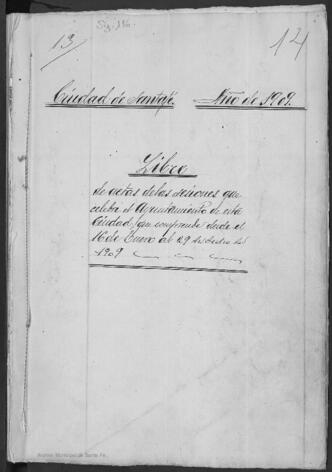 Sig. 186
13
14
Ciudad de Santafé. Año de 1909.
Libro
de actas de las sesiones que
celebra el Ayuntamiento de esta
Ciudad, que comprende desde el
16 de Enero al 29 de
1909
Archivo Municipal de Santa Fe.